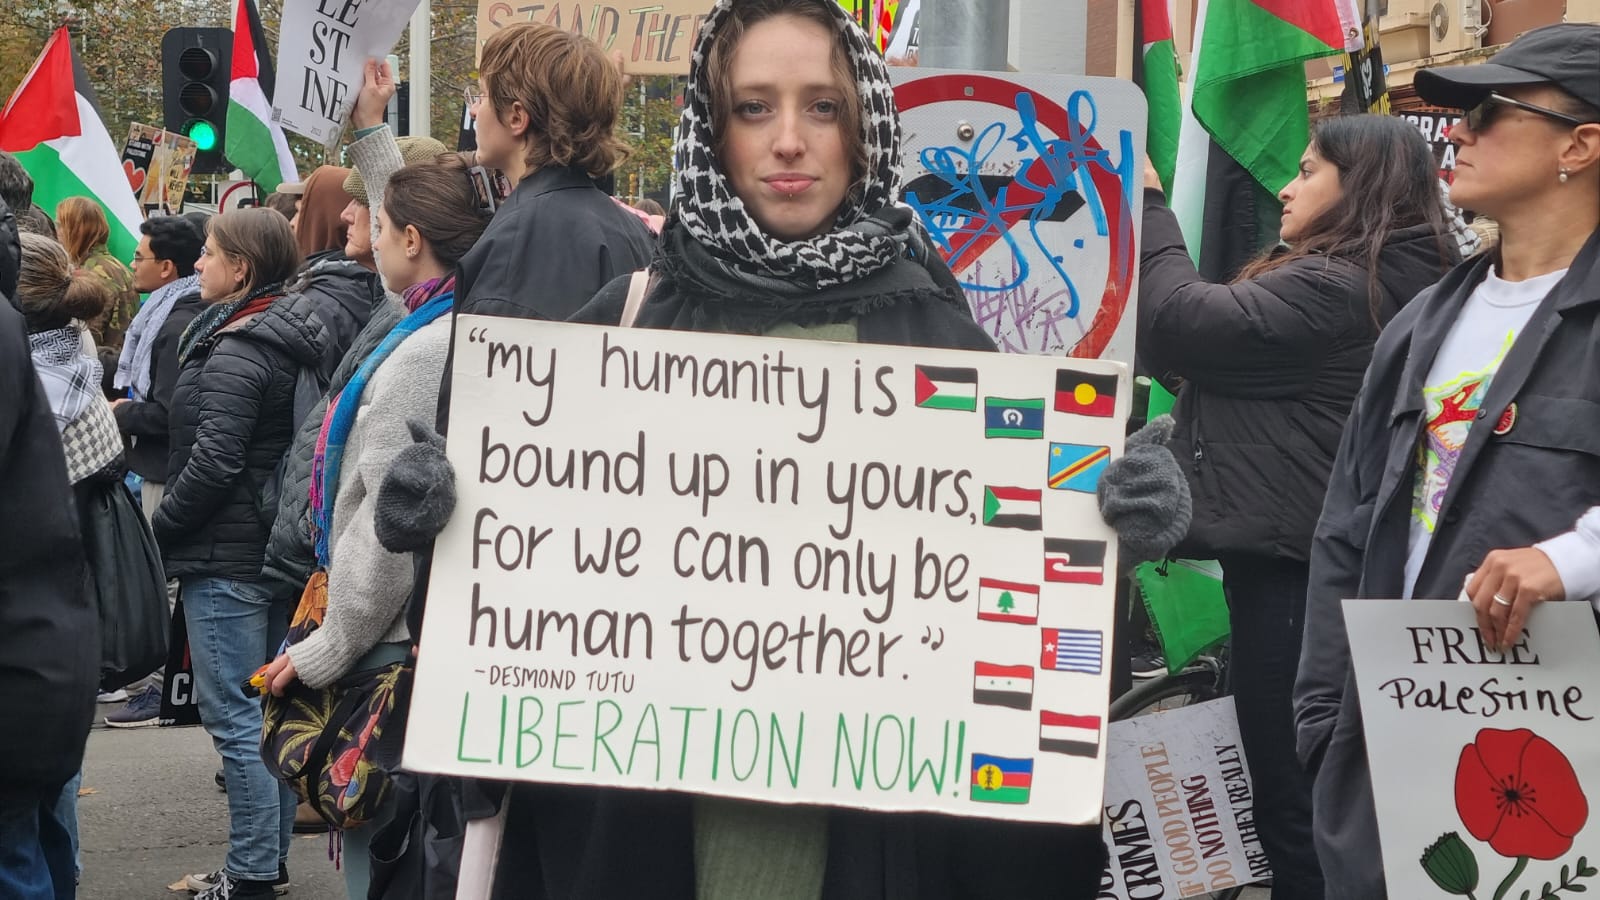 LE
ST
INE
STAND THE
"my humanity is
bound up in yours,
for we can only be
human together."
-DESMOND TUTU
LIBERATION NOW!
FREE
PaLeStine
CRIMES
IF GOOD PEOPLE
DO NOTHING
ARE THEY REALLY